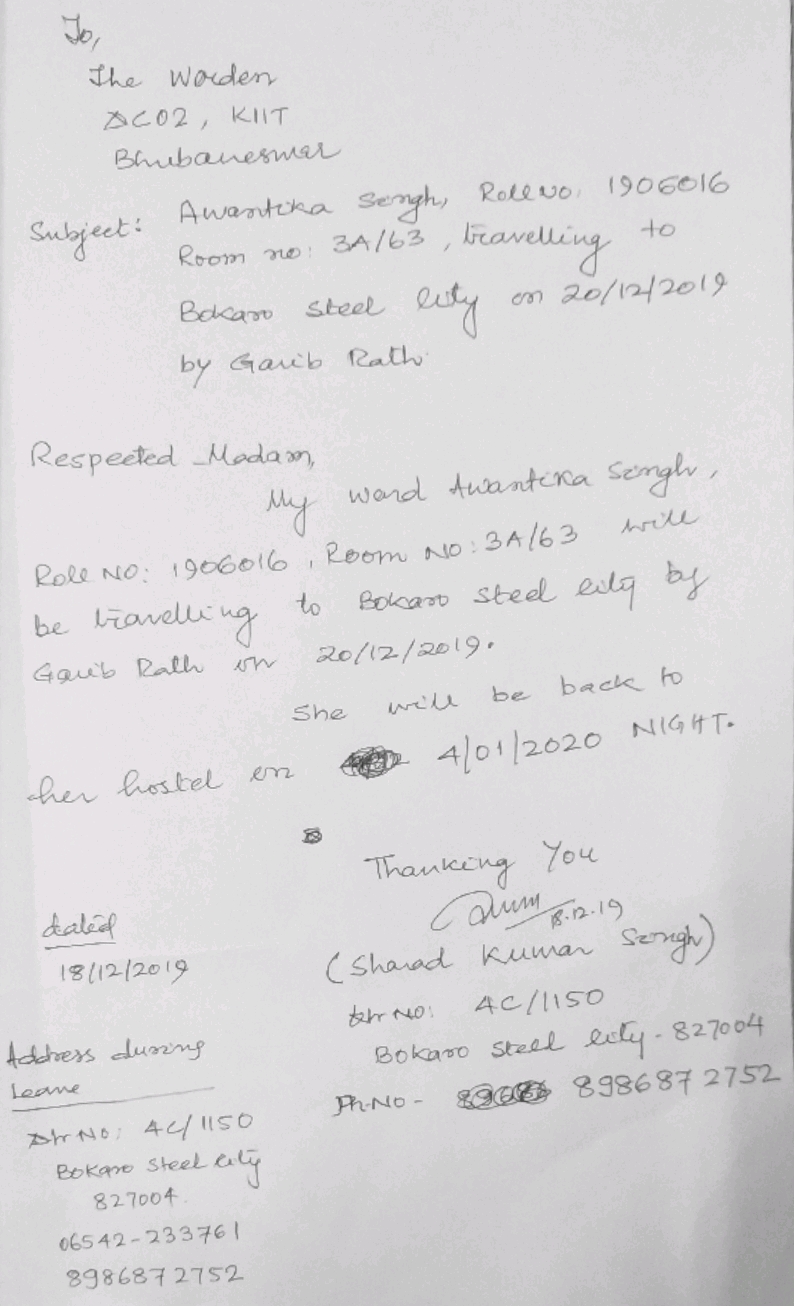 To,
The Warden
DC02, KIIT
Bhubaneswar
Subject: Awantika Singh, Roll No. 1906016
Room no: 3A/63, travelling to
Bokaro Steel City on 20/12/2019
by Garib Rath
Respected Madam,
My ward Awantika Singh,
Roll NO: 1906016, Room NO: 3A/63 will
be travelling to Bokaro Steel City by
Garib Rath on 20/12/2019.
She will be back to
her hostel on 4/01/2020 NIGHT.
Thanking You
18.12.19
(Sharad Kumar Singh)
Qtr NO: 4C/1150
Bokaro Steel City - 827004
Ph.No - 8986872752
dated
18/12/2019
Address during
Leave
Qtr No: 4C/1150
Bokaro Steel City
827004
06542-233761
8986872752